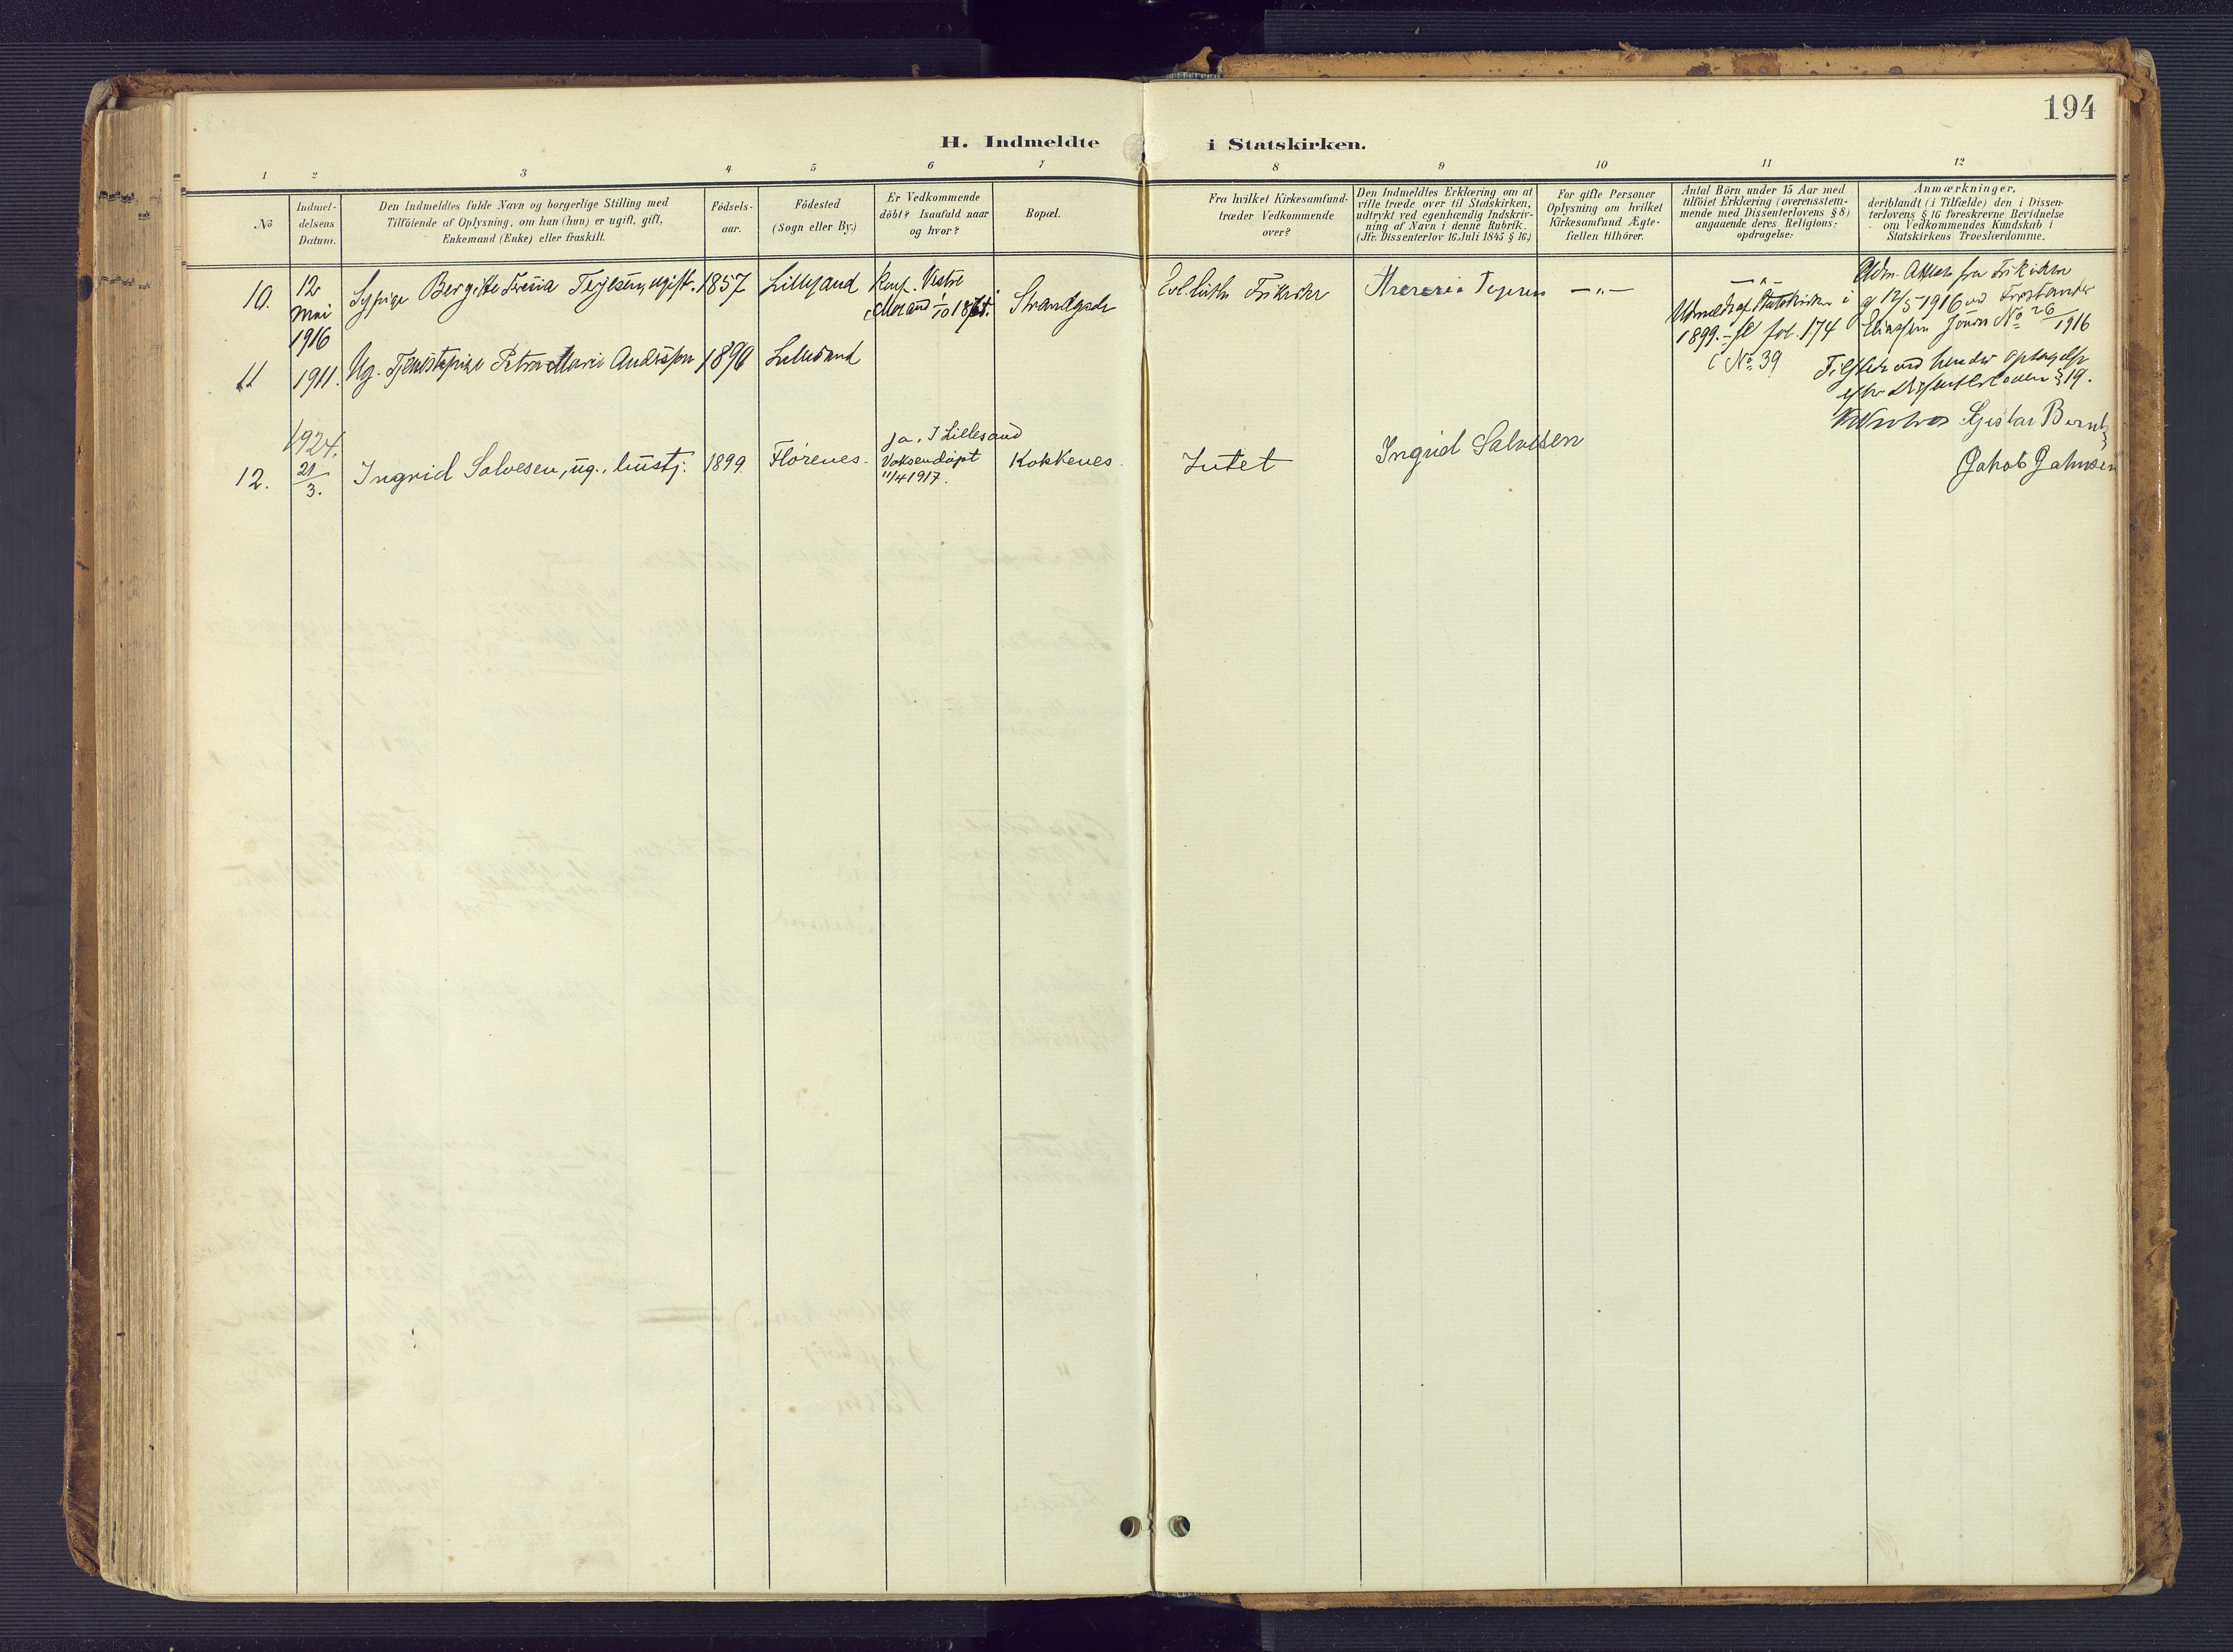 194
H. Indmeldte i Statskirken.
1 2 3 4 5 6 7 8 9 10 11 12
No
Indmel-
delsens
Datum.
Den Indmeldtes fulde Navn og borgerlige Stilling med
Tilföiende af Oplysning, om han (hun) er ugift, gift,
Enkemand (Enke) eller fraskilt.
Födsels-
aar.
Födested
(Sogn eller By.)
Er Vedkommende
döbt? Isaafald naar
og hvor?
Bopæl.
Fra hvilket Kirkesamfund
træder Vedkommende
over?
Den Indmeldtes Erklæring om at
ville træde over til Statskirken,
udtrykt ved egenhændig Indskriv-
ning af Navn i denne Rubrik.
(Jfr. Dissenterlov 16. Juli 1845 § 16.)
For gifte Personer
Oplysning om hvilket
Kirkesamfund Ægte-
fællen tilhörer.
Antal Börn under 15 Aar med
tilföiet Erklæring (overensstem-
mende med Dissenterlovens § 8)
angaaende deres Religions-
opdragelse.
Anmærkninger,
deriblandt (i Tilfælde) den i Dissen-
terlovens § 16 foreskrevne Bevidnelse
om Vedkommendes Kundskab i
Statskirkens Troeslærdomme.
10.
12
mai
1916
Sypige Bergitte Tresia Terjesen, ugift.
1857
Lillesand
Konf. Vestre
Moland 1/10
Strandgade
Evl. Luth Frikirke
Teresia Terjesen
— " —
— " —
Udmeldt af Statskirken i
1899. fol. 174
No 39
Udm. Attest fra Frikirken
d 12/5 1916 ved Forstander
No 26/1916
11
1911.
Ug. Tjenestepige Petra Marie
1890
Lillesand
Tilstede ved hendes Optagelse
efter Dissenterloven § 19.
Jakob Jahnsen
12.
1924.
21/3.
Ingrid Salvesen, ug., hustj.
1899
Flörenes.
Ja, I Lillesand
Voksendöpt
11/4 1917.
Kokkenes.
Intet
Ingrid Salvesen